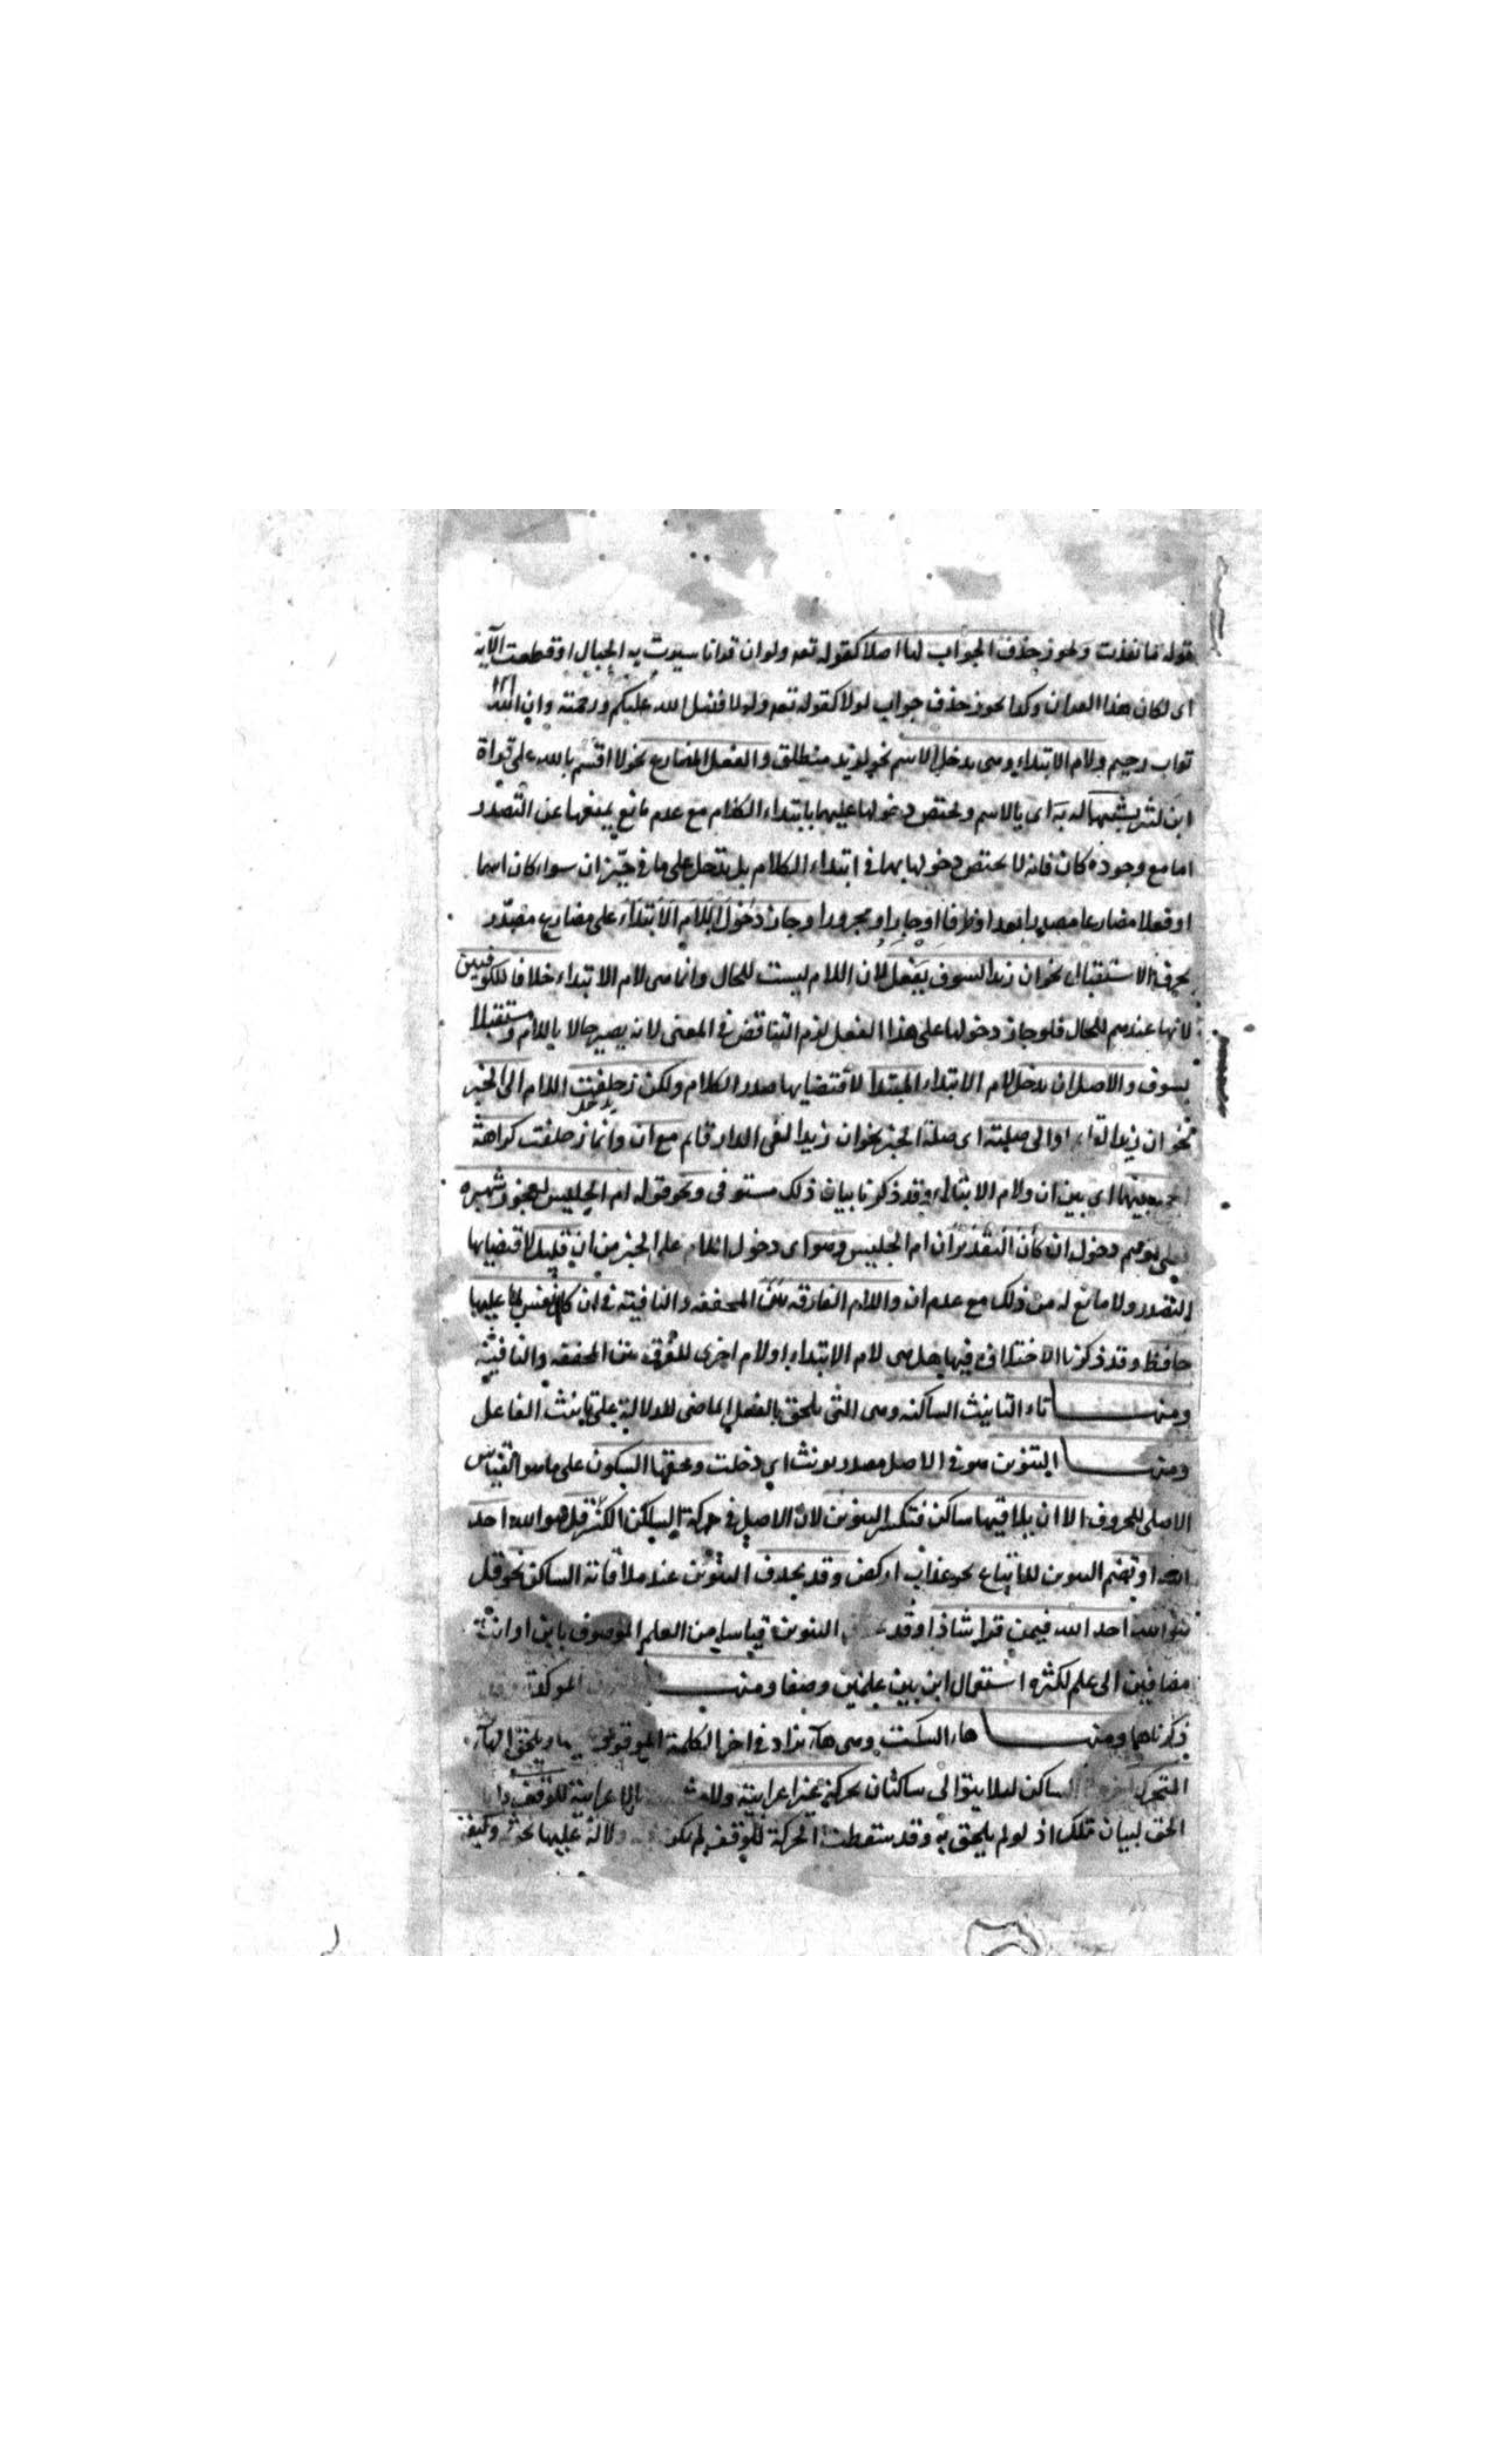 قوله ما نفذت ويجوز حذف الجواب لها اصلا كقوله تعه ولو ان قرانا سيرت به الجبال او قطعت الآية
اى لكان هذا القران وكذا يجوز حذف جواب لولا كقوله تعه ولولا فضل الله عليكم ورحمته وان الله
تواب رحيم ولام الابتداء وهى يدخل الاسم نحو لزيد منطلق والفعل المضارع نحو لا اقسم بالله على قراة
ابن كثير يشبهها له به اى بالاسم ويختص دخولها عليهما بابتداء الكلام مع عدم مانع يمنعها عن التصدر
اما مع وجوده كان فانه لا يختص دخولها بهما فى ابتداء الكلام بل يدخل على ما فى حيّز ان سواء كان اسما
او فعلا مضارعا مصدرا بعد او ظرفا او جارا او مجرورا وجاز دخول اللام الابتداء على مضارع مصدر
بحرف الاستقبال نحو ان زيدا لسوف يفعل لان اللام ليست للحال وانما هى لام الابتداء خلافا للكوفيين
لانها عندهم للحال فلو جاز دخولها على هذا الفعل لزم التناقض فى المعنى لانه يصير حالا باللام ومستقبلا
بسوف والاصل ان يدخل لام الابتداء المبتدا لاقتضايها صدر الكلام ولكن زحلفت اللام الى الخبر
نحو ان زيدا او الى صلته اى صلة الخبر نحو ان زيدا لفى الدار قايم مع ان وانما زحلفت كراهة
بينهما اى بين ان ولام الابتداء وقد ذكرنا بيان ذلك مستوفى ونحو قوله ام الحليس لعجوز شهربه
دخول ان كأن التقدير ان ام الحليس وهو اى دخول اللام على الخبر من ان قليل لاقتضايها
التصدر ولا مانع له من ذلك مع عدم ان واللام الفارقه بين المخففه والنافية فى ان كل نفس لما عليها
حافظ وقد ذكرنا الاختلاف فيها هل هى لام الابتداء او لام اخرى للفرق بين المخففه والنافية
ومنها تاء التانيث الساكنه وهى التى يلحق بالفعل الماضى للدلالة على تانيث الفاعل
ومنها التنوين هو فى الاصل مصدر نونت اى دخلت وحقها السكون على ما هو القياس
الاصلى للحروف الا ان يلاقيها ساكن فتكسر التنوين لان الاصل فى حركة الساكن الكسر قل هو الله احد
الله او تضم التنوين للاتباع نحو عذاب اركض وقد يحذف التنوين عند ملاقاته الساكن نحو قل
هو الله احد الله فيمن قرا شاذا وقد التنوين قياسا من العلم الموصوف بابن او ابنة
مضافين الى علم لكثره استعمال ابن بين علمين وصفا ومنها الموكدة
ذكرناها ومنها هاء السكت وهى هاء يزاد فى اخر الكلمة الموقوف
المتحرك الساكن ليلا يتوالى ساكنان بحركة غير اعرابية الاعرابية للوقف
الحق لبيان تلك اذ لو لم يلحق به وقد سقطت الحركة للوقف لم يكن دلالة عليها نحو